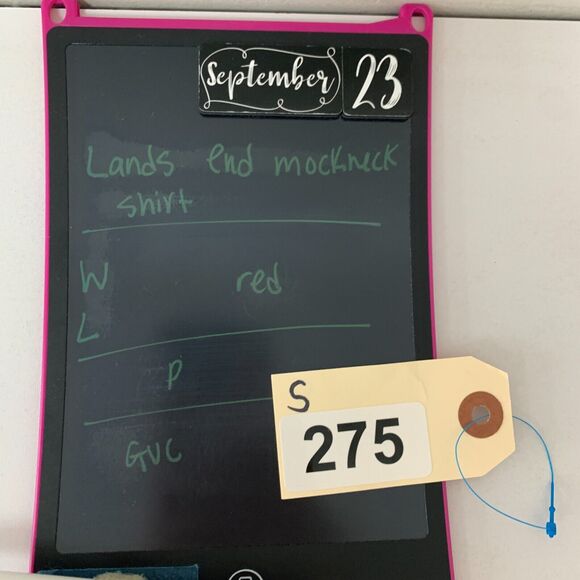 September 23
Lands end mockneck
shirt
W red
L
P
GVC
S
275